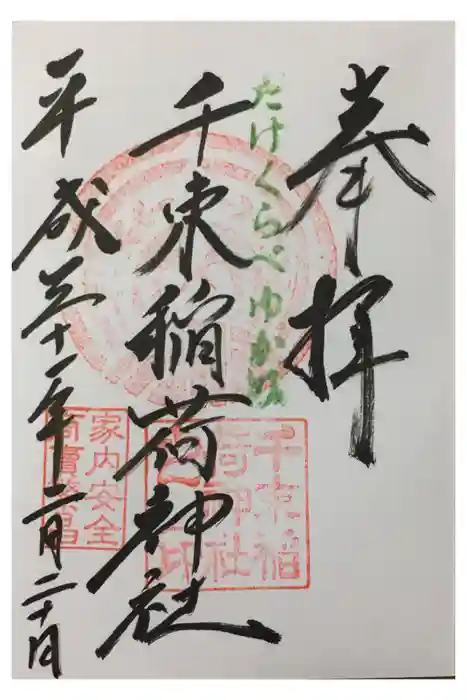 奉拝
たけくらべゆかり
千束稲荷神社
平成三十一年二月二十日
家内安全
商賣繁昌
千束稲
荷神社